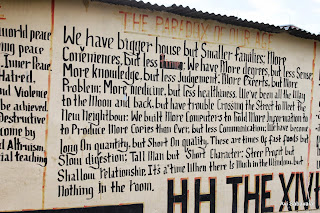 THE PARADOX OF OUR AGE
We have bigger house but Smaller families: More
Conveniences, but less : We have More degrees, but less Sense;
More knowledge, but less Judgement: More Experts, but More
Problem: More medicine, but less healthiness. We've been all the Way
to the Moon and back, but have trouble Crossing the Street to Meet The
New Neighbour: We built More Computers to Hold More Information to
to Produce More Copies than Ever; but less Communication: We have become
Long On quantity, but Short On quality. These are times Of Fast foods but
Slow digestion; Tall Man but Short Character: Steep Profit but
Shallow Relationship. It's a time When there Is Much in the Window, but
Nothing In the Room.
HH THE XIV
world peace
ing peace
Inner Peace.
Hatred,
and Violence
be achieved.
Destructive
come by
Altruism,
ial teaching